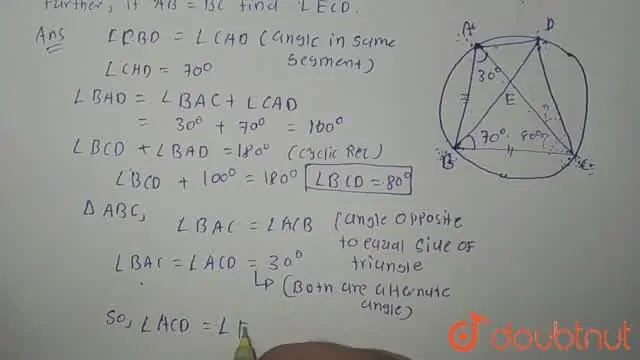 further, if AB = BC find ∠ECD.
Ans ∠CBD = ∠CAD (angle in same
segment)
∠CAD = 70°
∠BAD = ∠BAC + ∠CAD
= 30° + 70° = 100°
∠BCD + ∠BAD = 180° (cyclic Rec)
∠BCD + 100° = 180° ∠BCD = 80°
Δ ABC,
∠BAC = ∠ACB (angle opposite
to equal side of
triangle
∠BAC = ∠ACD = 30°
↳ (Both are alternate
angle)
So, ∠ACD = ∠
A D
30°
E
?
B 70° 80°? C
doubtnut